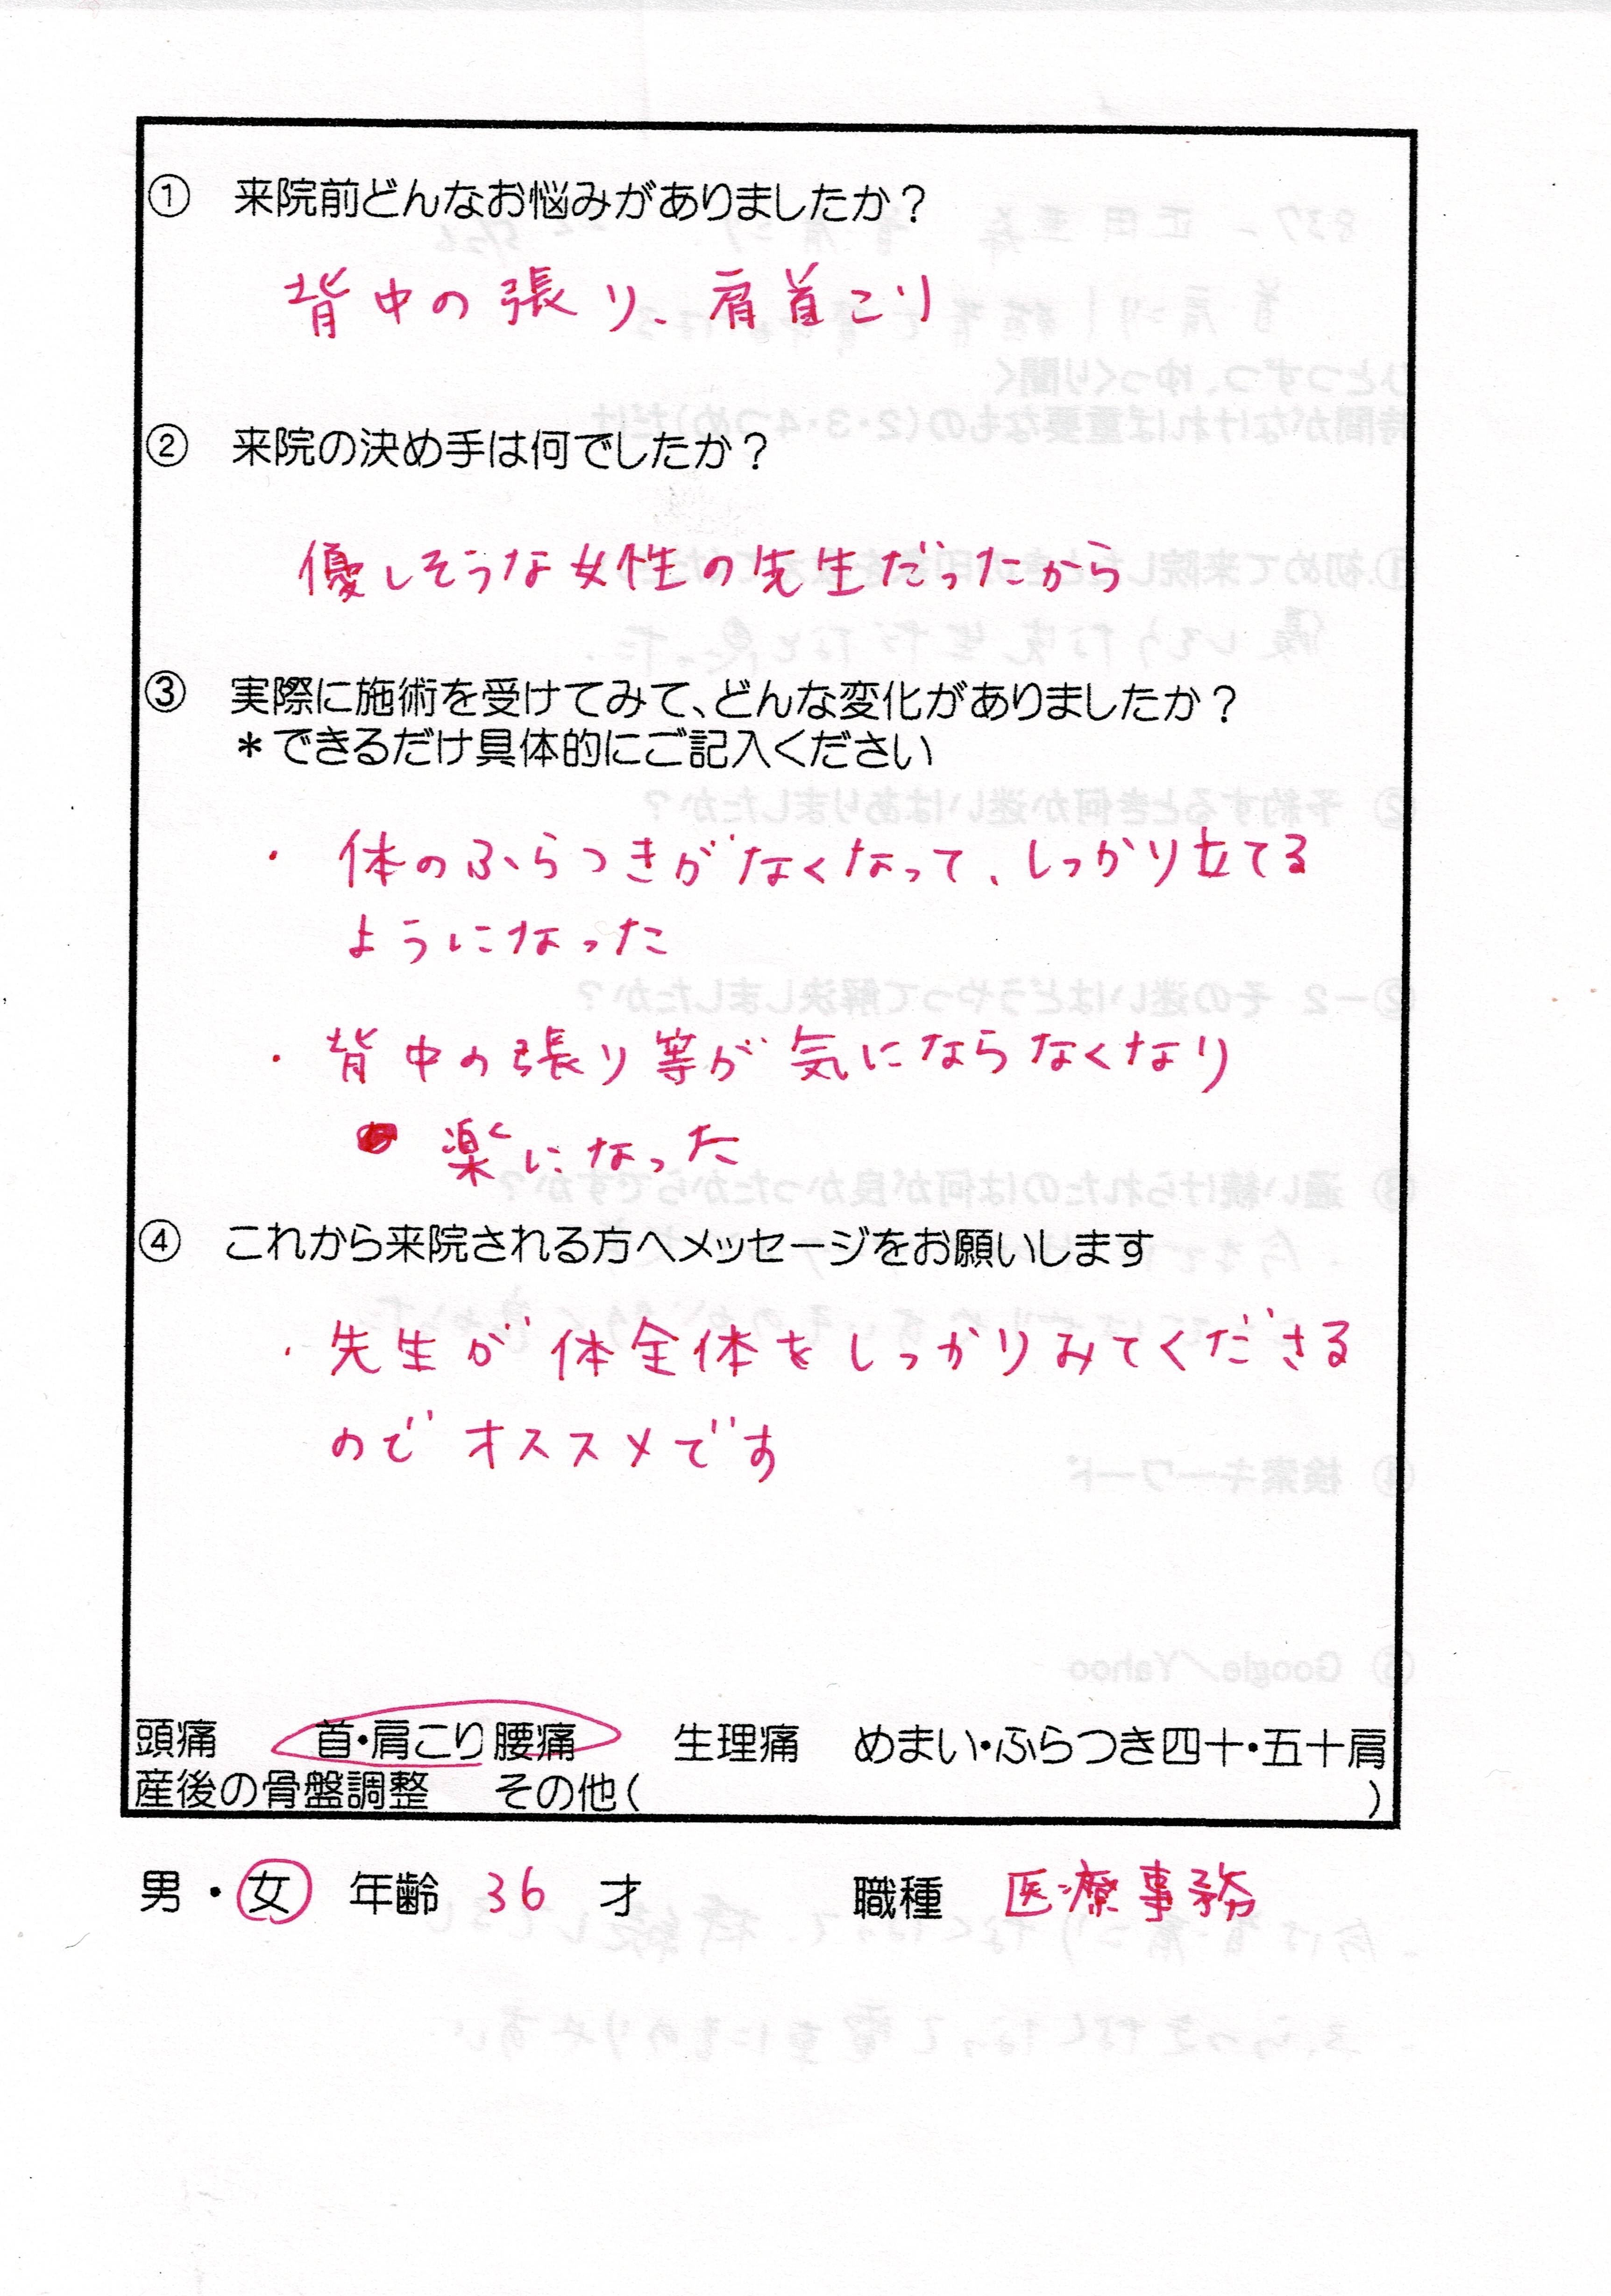 ① 来院前どんなお悩みがありましたか？
背中の張り、肩首こり
② 来院の決め手は何でしたか？
優しそうな女性の先生だったから
③ 実際に施術を受けてみて、どんな変化がありましたか？
＊できるだけ具体的にご記入ください
・ 体のふらつきがなくなって、しっかり立てる
ようになった
・ 背中の張り等が気にならなくなり
楽になった
④ これから来院される方へメッセージをお願いします
・ 先生が体全体をしっかりみてくださる
のでオススメです
頭痛 首・肩こり 腰痛 生理痛 めまい・ふらつき 四十・五十肩
産後の骨盤調整 その他（ ）
男・女 年齢 36 才 職種 医療事務